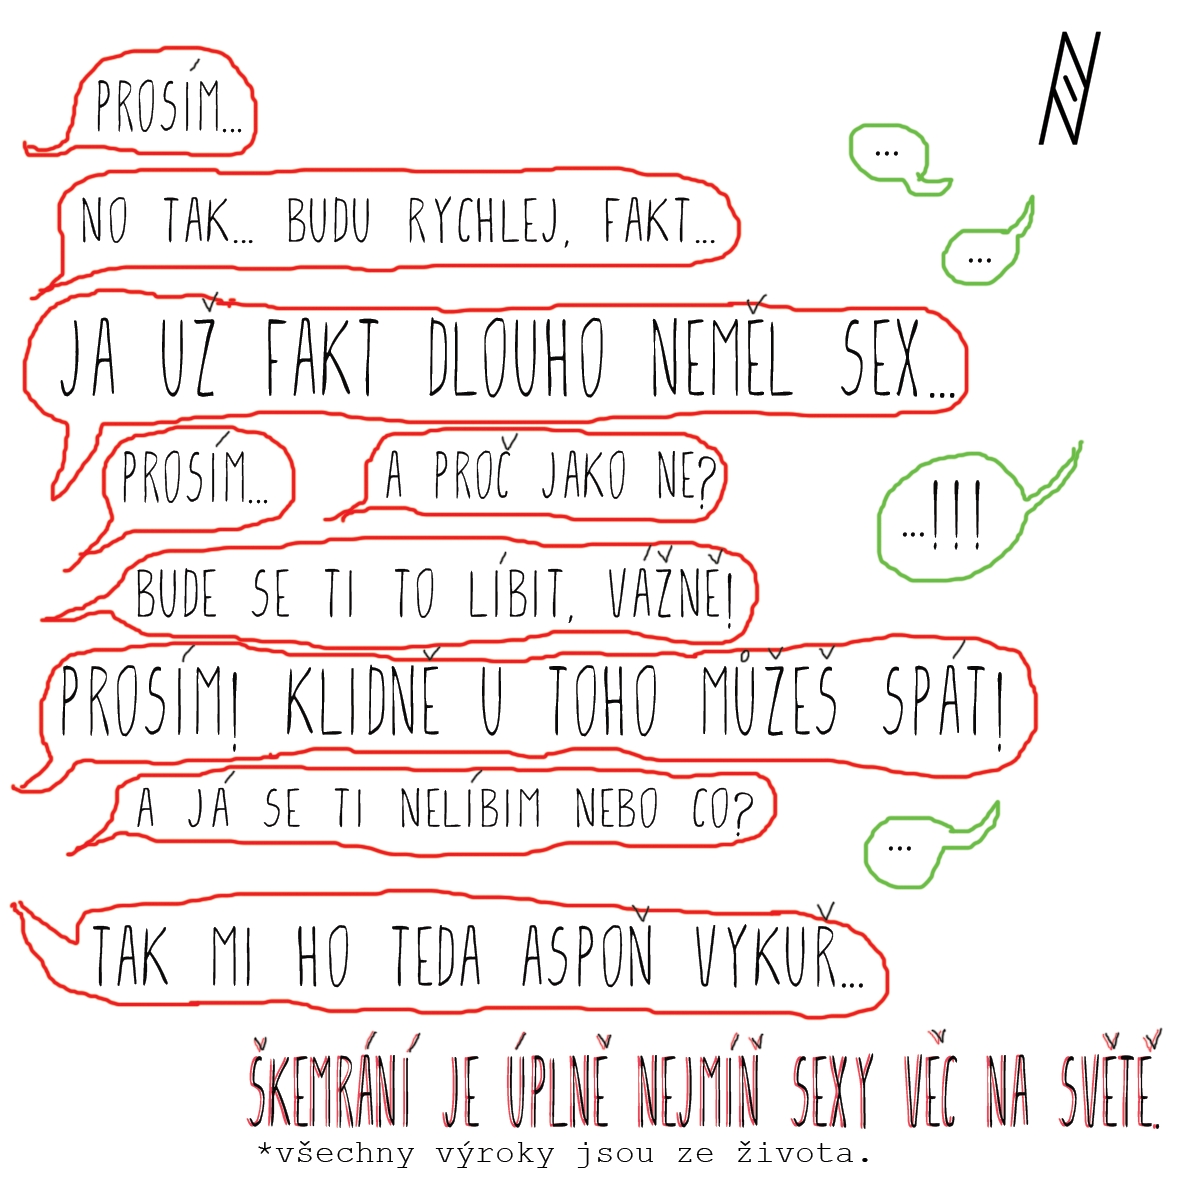 PROSÍM...
...
NO TAK... BUDU RYCHLEJ, FAKT...
...
JA UŽ FAKT DLOUHO NEMĚL SEX...
PROSÍM... A PROČ JAKO NE?
...!!!
BUDE SE TI TO LÍBIT, VÁŽNĚ!
PROSÍM! KLIDNĚ U TOHO MŮŽEŠ SPÁT!
A JÁ SE TI NELÍBIM NEBO CO?
...
TAK MI HO TEDA ASPOŇ VYKUŘ...
ŠKEMRÁNÍ JE ÚPLNĚ NEJMÍŇ SEXY VĚC NA SVĚTĚ.
*všechny výroky jsou ze života.